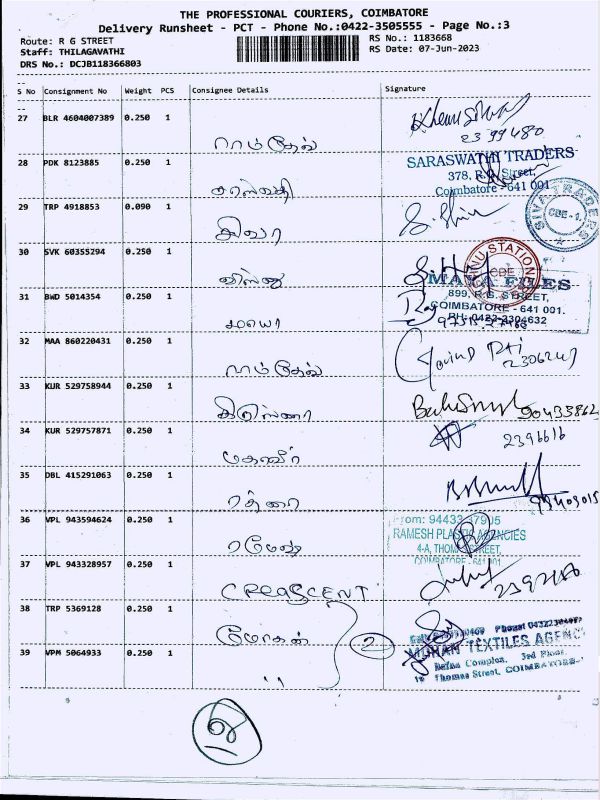 THE PROFESSIONAL COURIERS, COIMBATORE
Delivery Runsheet - PCT - Phone No.:0422-3505555 - Page No.:3
Route: R G STREET
RS No.: 1183668
Staff: THILAGAVATHI
RS Date: 07-Jun-2023
DRS No.: DCJB118366803
S No Consignment No Weight PCS Consignee Details Signature
27 BLR 4604007389 0.250 1
ராம்தேவ்
2399480
28 PDK 8123885 0.250 1
சரஸ்வதி
SARASWATHI TRADERS
378, R.G. Street,
Coimbatore - 641 001
29 TRP 4918853 0.090 1
சிவா
SIVA TRADERS
CBE - 1.
30 SVK 60355294 0.250 1
விஸ்ணு
STATION
CBE
31 BWD 5014354 0.250 1
மாயா
MAYA FILES
899, R.G. STREET,
COIMBATORE - 641 001.
PH: 0422-2304632
32 MAA 860220431 0.250 1
ராம்தேவ்
Govind Raj
33 KUR 529758944 0.250 1
கிருஸ்ணா
90433862
34 KUR 529757871 0.250 1
மகாவீர்
2396616
35 DBL 415291063 0.250 1
ரத்னா
36 VPL 943594624 0.250 1
ரமேஷ்
RAMESH PLASTIC AGENCIES
4-A, THOMAS STREET,
COIMBATORE - 641 001
37 VPL 943328957 0.250 1
CREASCENT
38 TRP 5369128 0.250 1
மோகன்
2
MOHAN TEXTILES AGENC
3rd Floor,
Thomas Street, COIMBATORE-
39 VPM 5064933 0.250 1
"